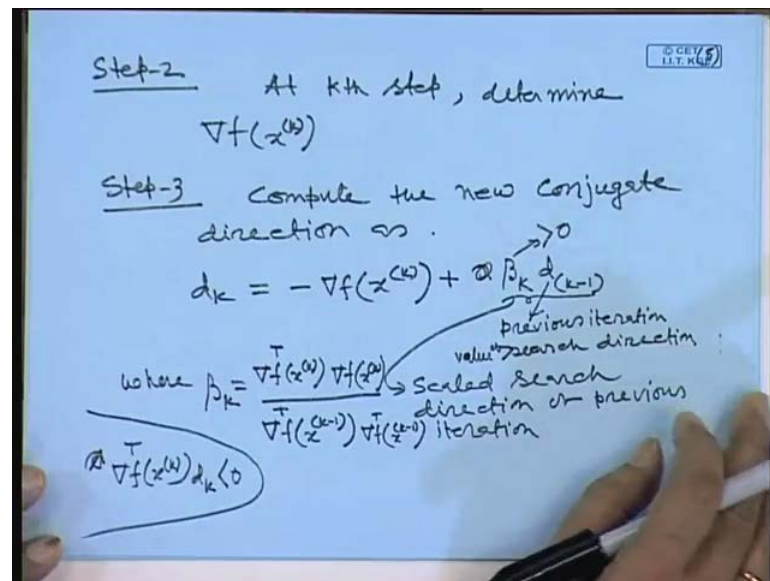 © CET
I.I.T. KGP
Step-2 At kth step, determine
∇f(x^(k))
Step-3 Compute the new conjugate
direction as.
d_k = -∇f(x^(k)) + β_k d_(k-1)
>0
previous iteration
value search direction
where β_k = ∇f^T(x^(k)) ∇f(x^(k)) / ∇f^T(x^(k-1)) ∇f^T(x^(k-1))
Scaled search
direction of previous
iteration
∇f^T(x^(k)) d_k < 0